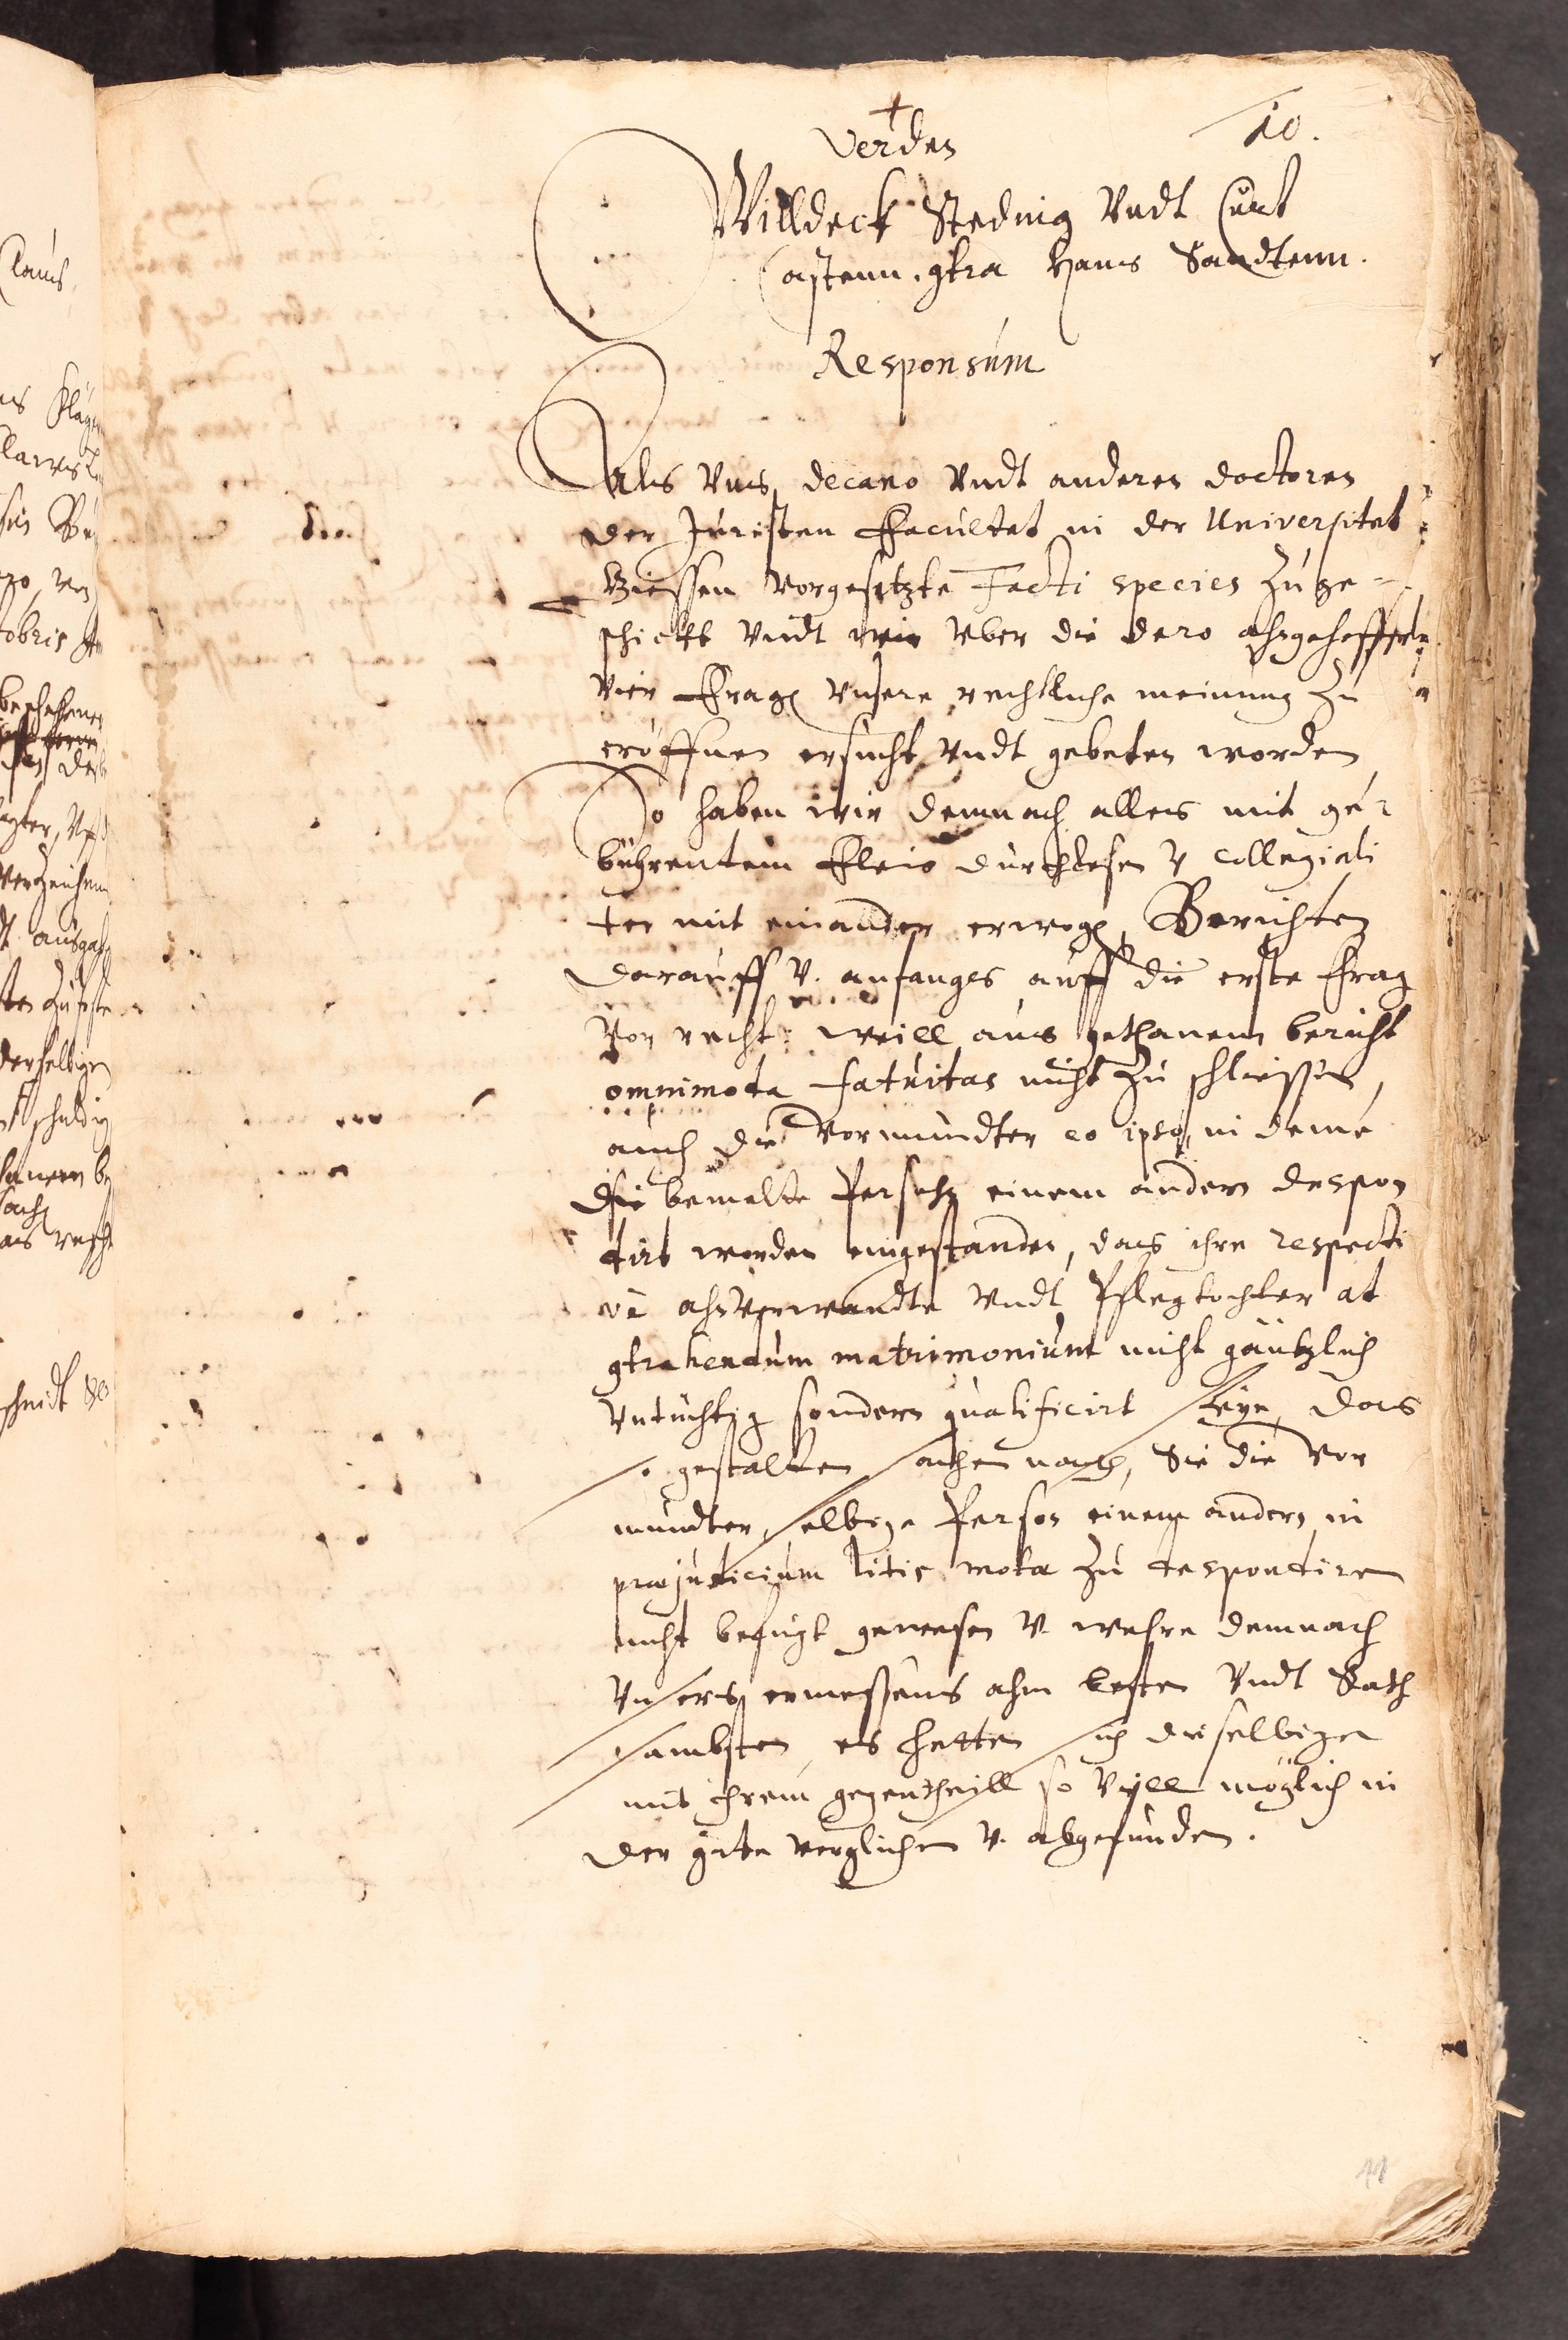 +
Verden
10.
Willdeck Steding Vndt Curt
Castenn. gtra Hans Sandtenn.
Responsum
Als Vns, decano Vndt anderen doctoren
der Juristen Facultet in der Universitet
Giessen Vorgesetzte Facti species zu ge-
schickt Vndt wir Vber die dero ahngeheffte
Vier Frag Vnsere rechtliche meinung zu
eröffnen ersucht Vndt gebeten worden
So haben wir demnach alles mit ge-
bührentem Fleis durchlesen V collegiali
ter mit einander erwog, Berichten
darauff V. anfangs auff die erste Frag
Vor recht: weill aus gethanem bericht
omnimoda fatuitas nicht zu schliessen,
auch die Vormundter eo ipso, in deme
die bemelte Persohn einem andern despon
dirt worden eingestanden, das ihre respecti
ve ahnverwandte Vndt Pflegtochter ad
gtrahendum matrimonium nicht gäntzlich
Vntüchtig sondern qualificirt seye, das
so gestalten sachen nach, Sie die Vor
mundter, selbige Person einem andern in
præjudicium litis motæ zu despondiren
nicht befugt gewesen V. wehre demnach
Vnsers ermessens ahm besten Vndt Rath
sambsten, es hetten sich dieselbigen
mit ihrem gegentheill so Viell möglich in
der güte verglichen V. abgefunden.
11
Claus,